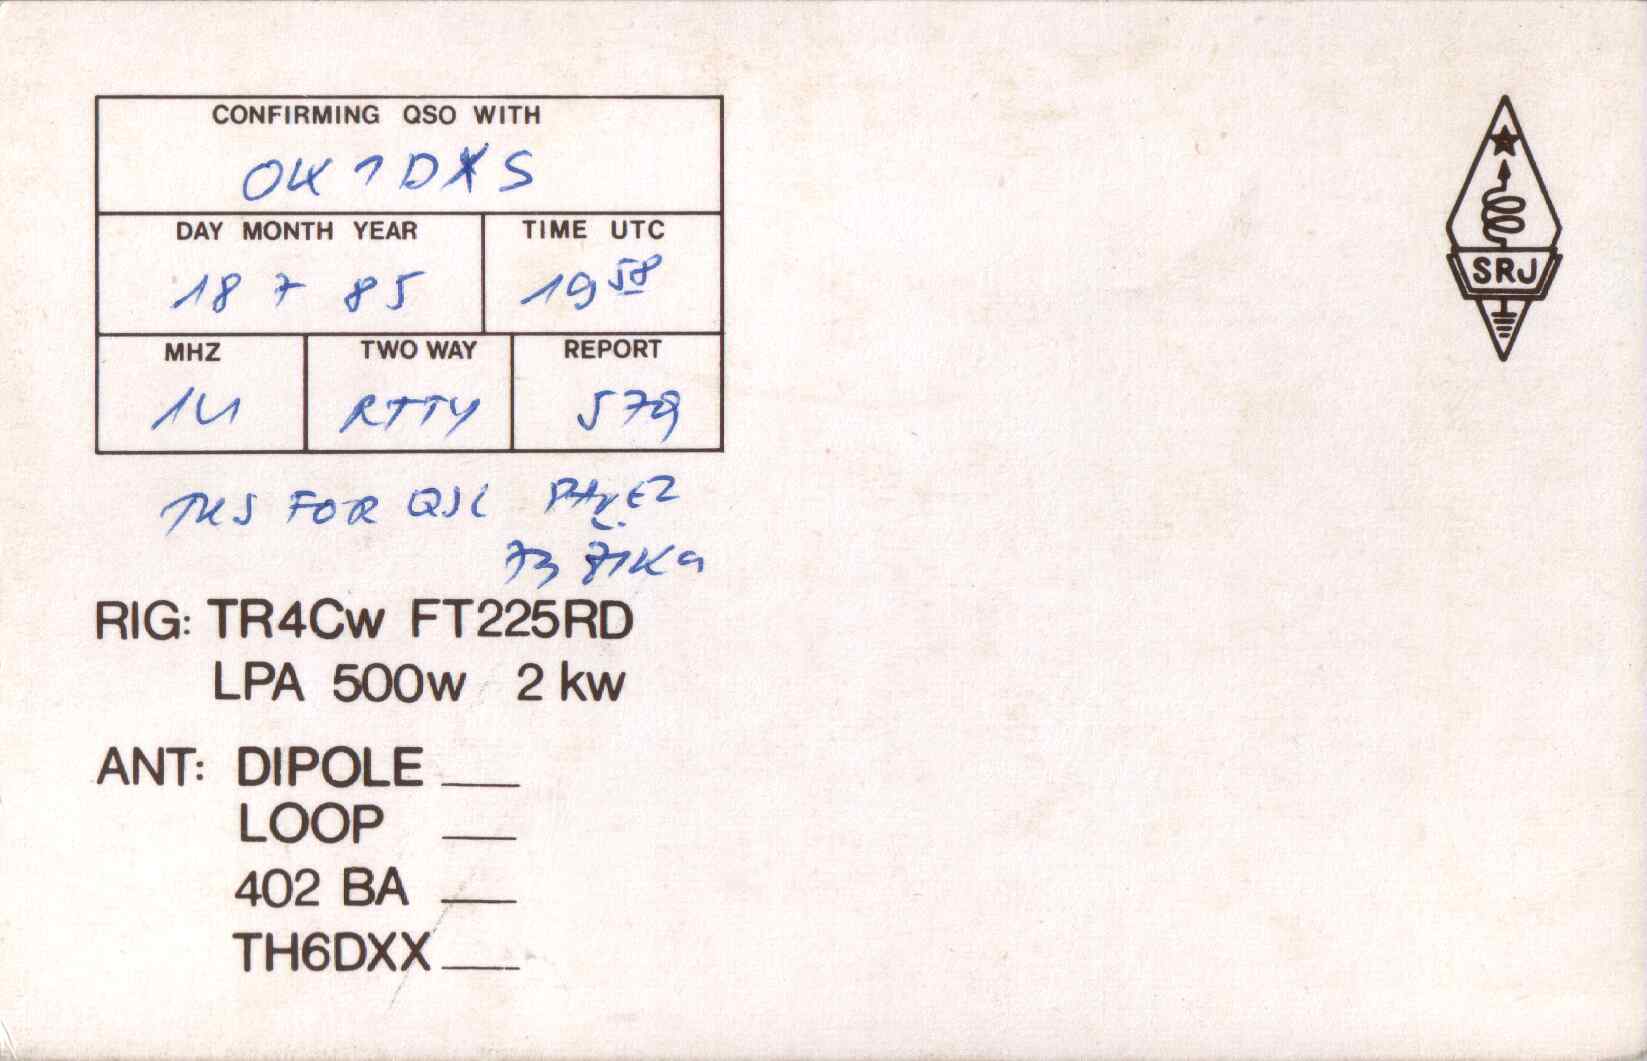 CONFIRMING QSO WITH
OK1DXS
DAY MONTH YEAR TIME UTC
18 7 85 19 58
MHZ TWO WAY REPORT
14 RTTY 579
TKS FOR QSL
73 ŽIKA
RIG: TR4Cw FT225RD
LPA 500w 2 kw
ANT: DIPOLE ___
LOOP ___
402 BA ___
TH6DXX ___
SRJ